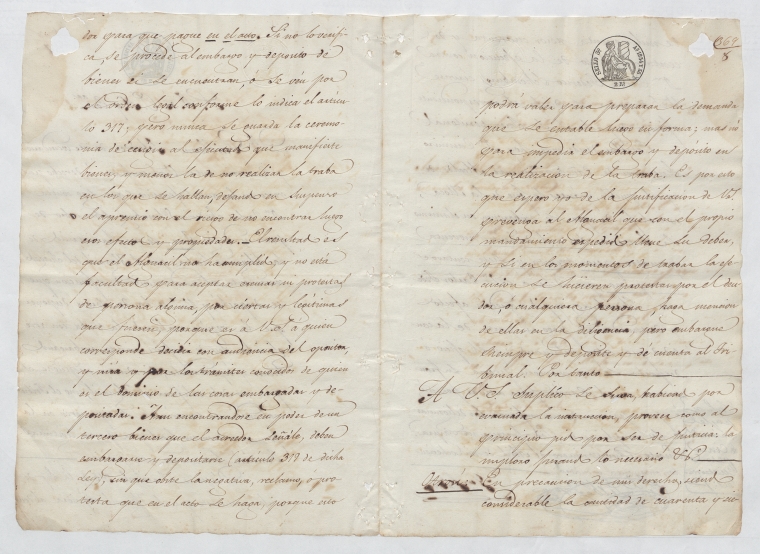 dor para que pague en el acto. Si no lo verifi-
ca, se procede al embargo y deposito de
bienes si se encuentran, ó se ván por
el orden legal conforme lo indica el artícu-
lo 317; pero nunca se guarda la ceremo-
nia de al que manifieste
bienes, y menos la de no realizar la traba
en los que se hallan, dejando en suspenso
el apremio con el de no encontrar luego
esos efectos y propiedades. El resultado es
que el Alguacil no ha cumplido, y no está
facultado para aceptar excusas ni protestas
de persona alguna, por ciertas y legítimas
que fueren; porque es a V.S. á quien
corresponde decidir con audiencia del opositor,
y por los trámites conocidos de quien
es el dominio de las cosas embargadas y de-
positadas. Aun encontrandose en poder de un
tercero bienes que el acreedor señale, deben
embargarse y depositarse (artículo 313 de dicha
Ley), sin que obste la negativa, reclamo, o pro-
testa que en el acto se haga; porque esto
369
8
podrá valer para preparar la demanda
que se entable luego en forma; mas nó
para impedir el embargo y deposito en
la realizacion de la traba. Es por esto
que espero de la justificacion de V.S.
prevenga al Alguacil que con el propio
mandamiento espedido llene su deber,
y si en los momentos de trabar la eje-
cucion se hicieren protestas por el deu-
dor, o cualquiera persona, haga mencion
de ellas en la diligencia, pero embargue
siempre y deposite y dé cuenta al Tri-
bunal. Por tanto
A V.S. suplico se sirva, habida por
evacuada la instruccion, proveer como al
principio pido por ser de justicia, la
imploro jurando lo necesario &c.
Otrosí: En precaucion de mis derechos, siendo
considerable la cantidad de cuarenta y